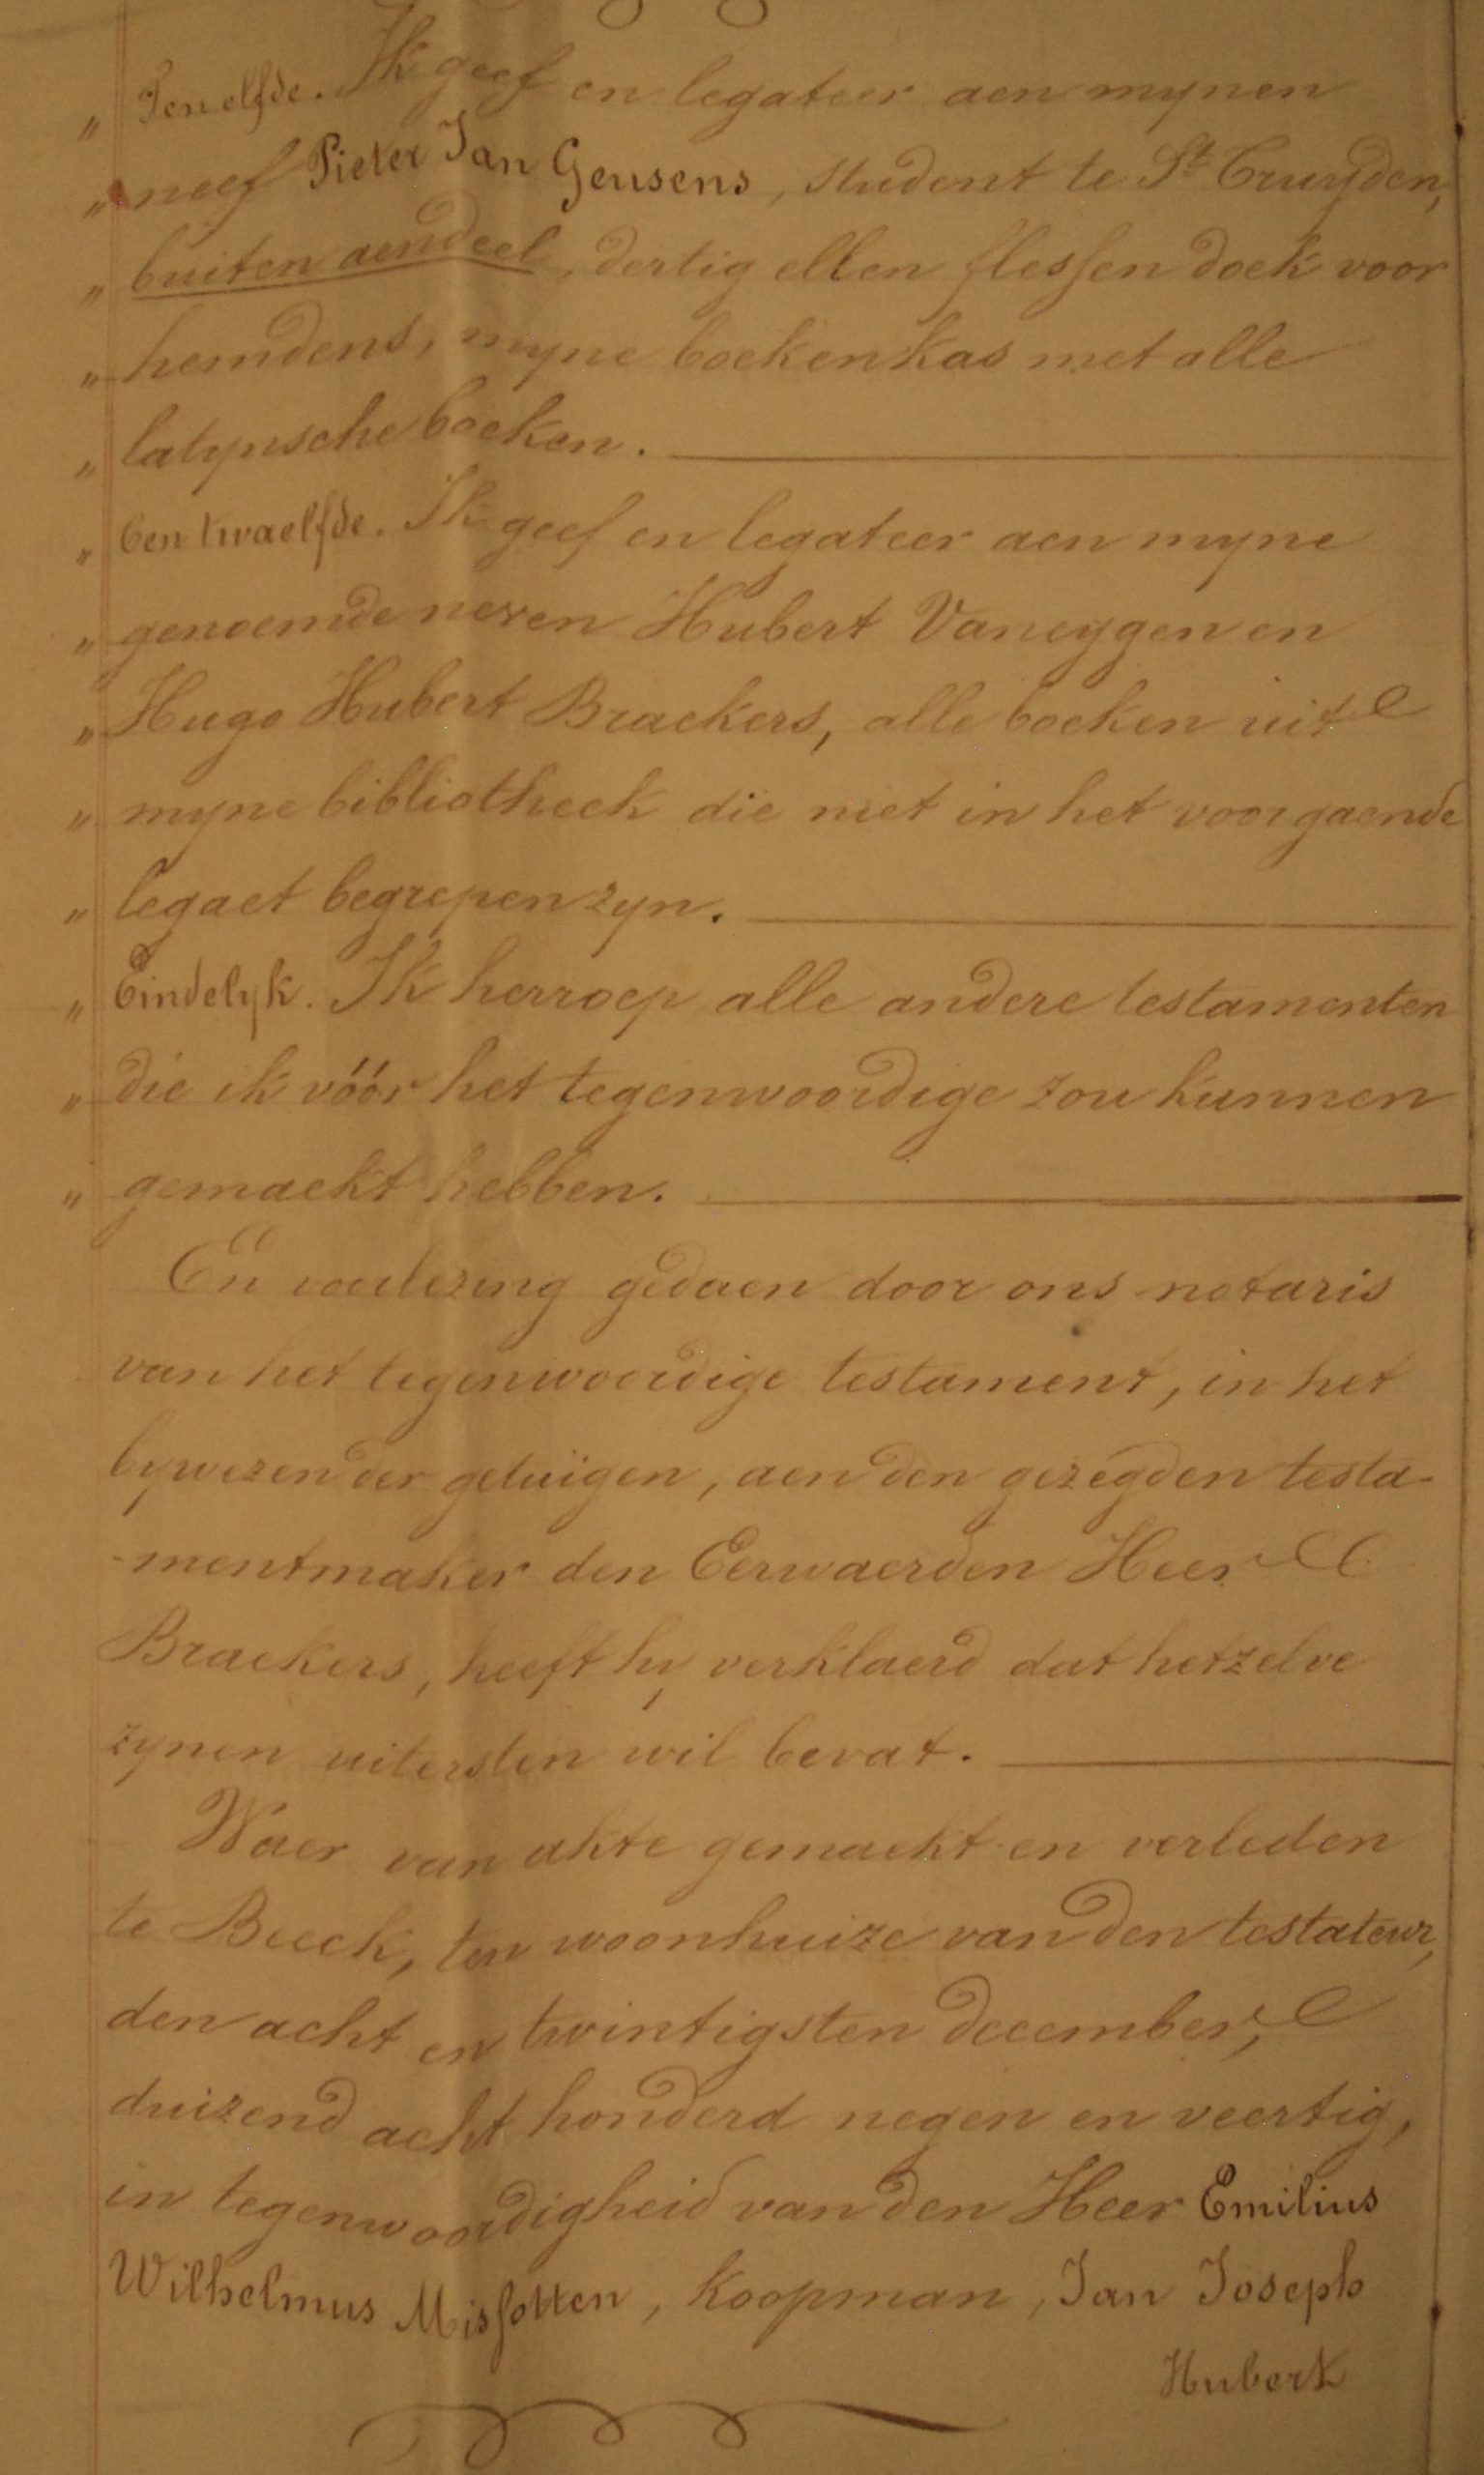 „ Ten elfde. Ik geef en legateer aen mynen
„ neef Pieter Jan Geusens, student te St Truyden,
„ buiten aendeel, dertig ellen flessen doek voor
„ hemdens, myne boekenkas met alle
„ latynsche boeken.
„ Ten twaelfde. Ik geef en legateer aen myne
„ genoemde neven Hubert Vaneygen en
„ Hugo Hubert Braekers, alle boeken uit
„ myne bibliotheek die niet in het voorgaende
„ legaet begrepen zyn.
„ Eindelyk. Ik herroep alle andere testamenten
„ die ik vóór het tegenwoordige zou kunnen
„ gemaekt hebben.
En voorlezing gedaen door ons notaris
van het tegenwoordige testament, in het
bywezen der getuigen, aen den gezegden testa-
-mentmaker den Eerwaerden Heer
Braekers, heeft hy verklaerd dat hetzelve
zynen uitersten wil bevat.
Waer van akte gemaekt en verleden
te Beeck, ten woonhuize van den testateur,
den acht en twintigsten december,
duizend acht honderd negen en veertig,
in tegenwoordigheid van den Heer Emilius
Wilhelmus Missotten, koopman, Jan Joseph
Hubert